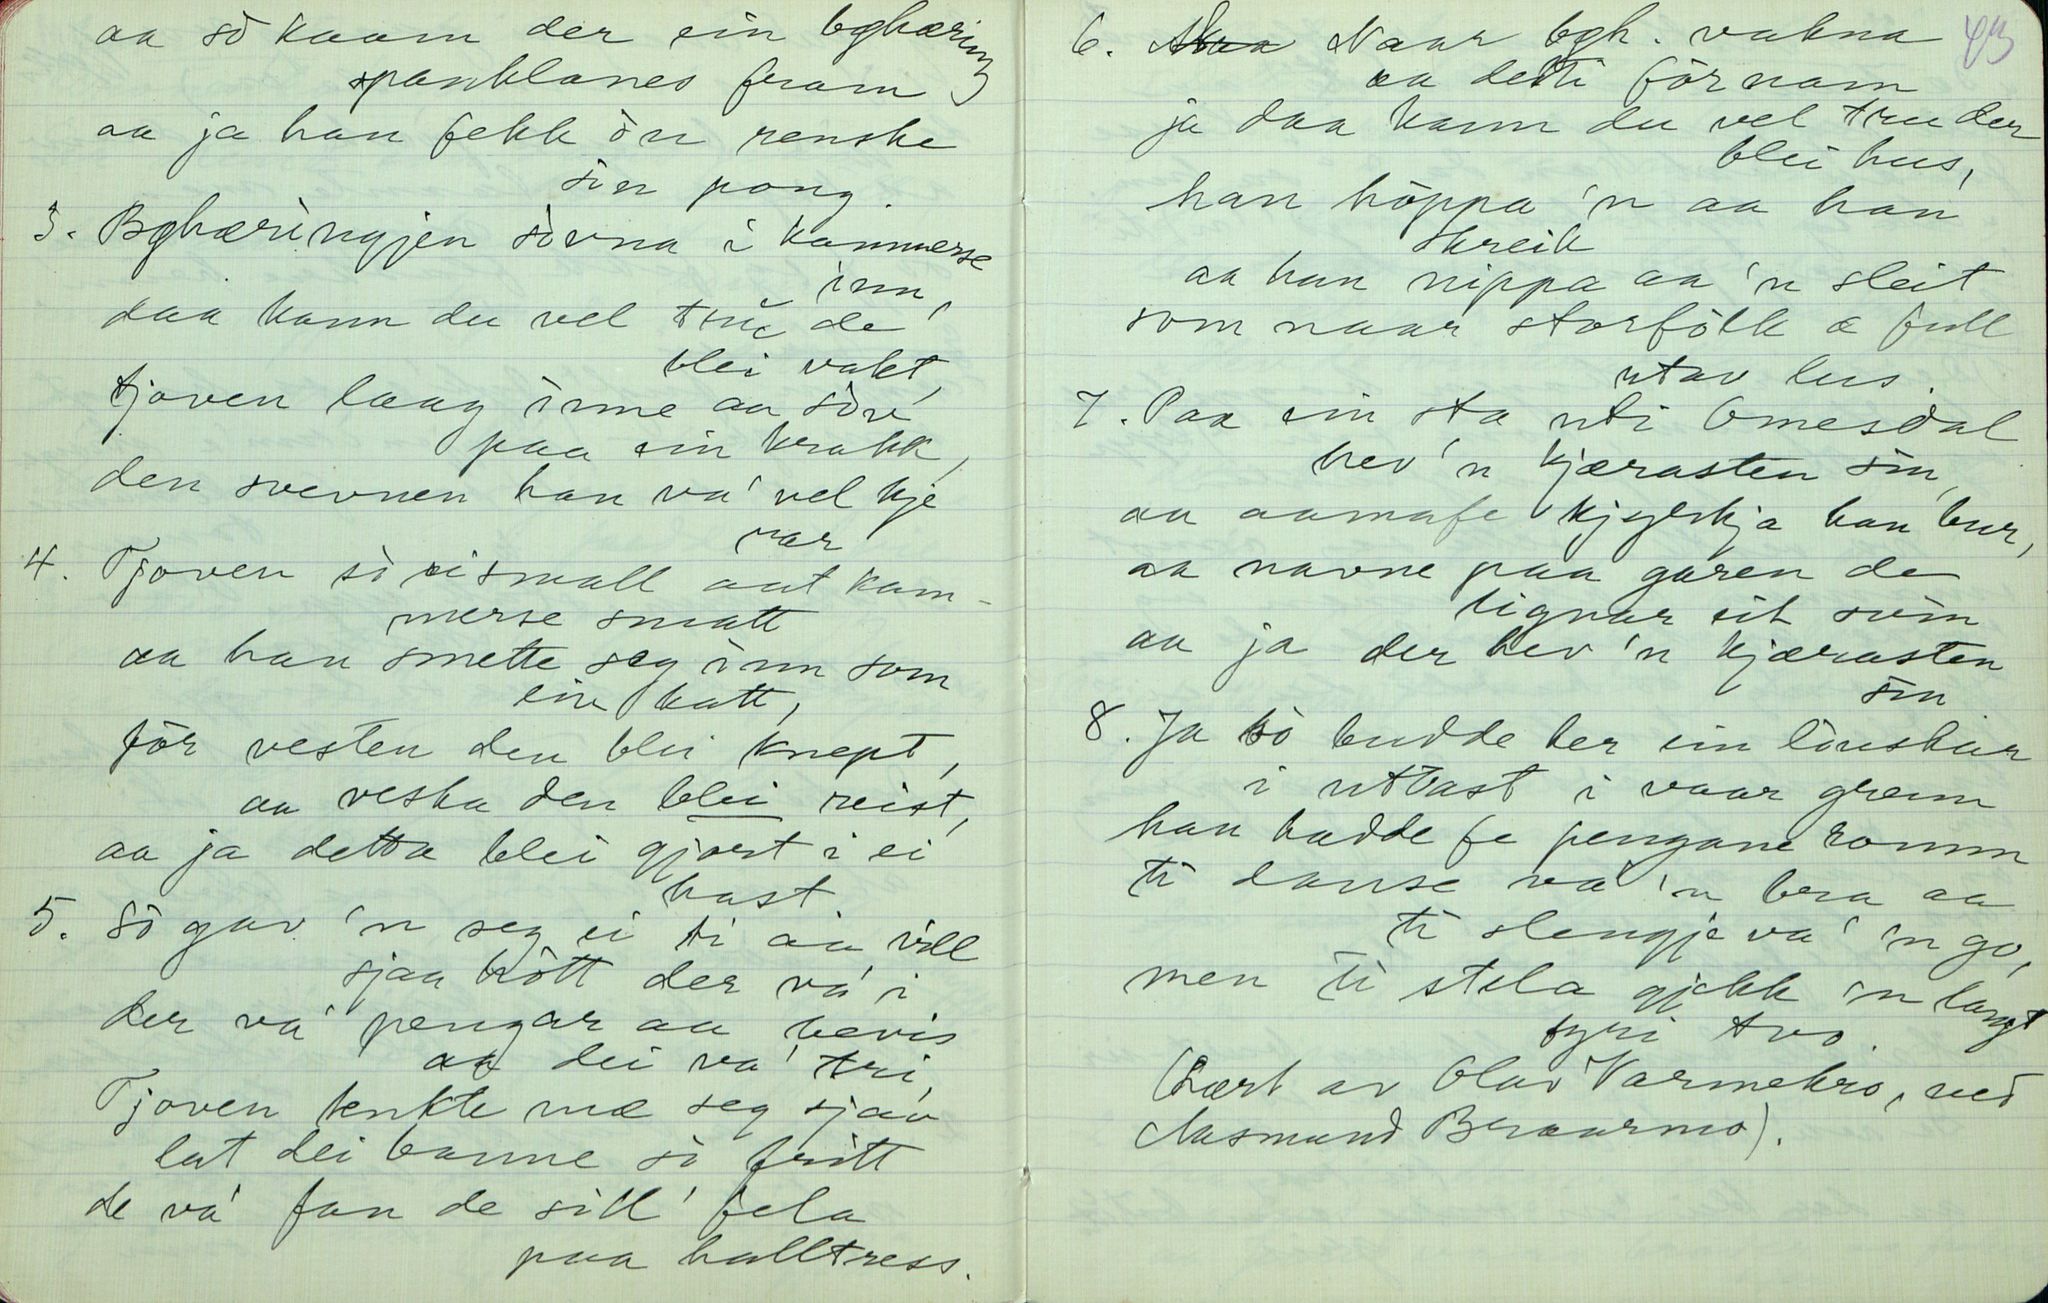 aa sò kaam der ein bghæring
spanklanes fram
aa ja han fekk òn renske
sin pong.
3. Bghæringjen sòvna i kammerse
inn,
daa kann du vel tru de
blei vakt,
tjoven laag inne aa sòv
paa ein krakk,
den svevnen han va' vel kje
var
4. Tjoven sò i small aat kam-
merse smatt
aa han smette seg inn som
ein katt,
fòr vesten den blei knept,
aa veska den blei reist,
aa ja detta blei gjort i ei
hast
5. Sò gav 'n seg ei ti aa vill
sjaa hòtt der va' i
der va' pengar aa bevis
aa dei va' tri,
Tjoven tenkte mæ seg sjav
lat dei banne sò fritt
de va' fan de sill' fela
paa halltress.
43
6. Naar bgh. vakna
aa detti fòrnam
ja daa kann du vel tru der
blei hus,
han hòppa 'n aa han
skreik
aa han nippa aa 'n sleit
som naar storfòlk æ full
utav lus.
7. Paa ein sta uti Omesdal
hev 'n kjærasten sin,
aa kjyrkja han bur,
aa navne paa garen de
lignar eit svin
aa ja der hev 'n kjærasten
sin
8. Ja sò budde her ein lònskar
i uttast i vaar grenn
han hadde fe pengane romm
ti danse va 'n bra aa
ti slengje va' 'n go,
men ti stela gjekk 'n langt
fyri tvo.
(Lært av Olav Varmekro, ved
Aasmund Beraarmo).